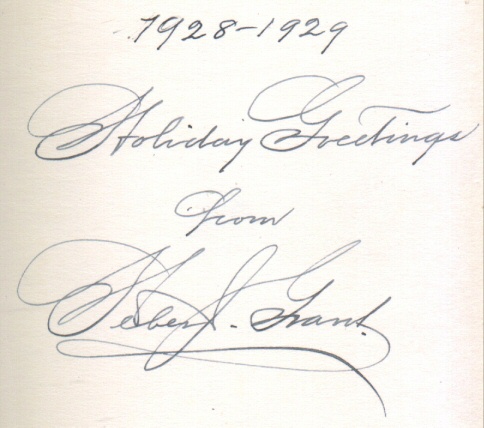 1928-1929
Holiday Greetings
from
Heber J. Grant.